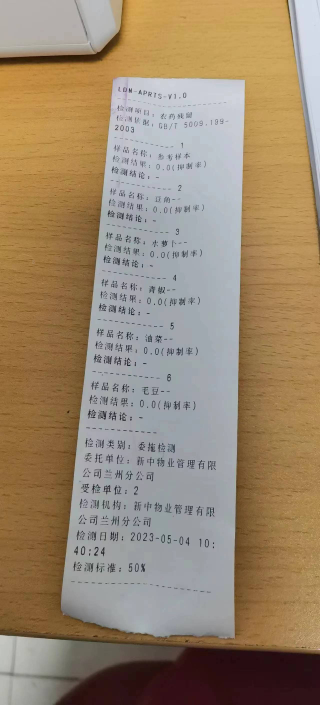 LDN-APRTS-V1.0
检测项目：农药残留
检测依据：GB/T 5009.199-
2003
1
样品名称：参考样本
检测结果：0.0(抑制率)
检测结论：-
2
样品名称：豆角--
检测结果：0.0(抑制率)
检测结论：-
3
样品名称：水萝卜--
检测结果：0.0(抑制率)
检测结论：-
4
样品名称：青椒--
检测结果：0.0(抑制率)
检测结论：-
5
样品名称：油菜--
检测结果：0.0(抑制率)
检测结论：-
6
样品名称：毛豆--
检测结果：0.0(抑制率)
检测结论：-
检测类别：委托检测
委托单位：新中物业管理有限
公司兰州分公司
受检单位：2
检测机构：新中物业管理有限
公司兰州分公司
检测日期：2023-05-04 10:
40:24
检测标准：50%